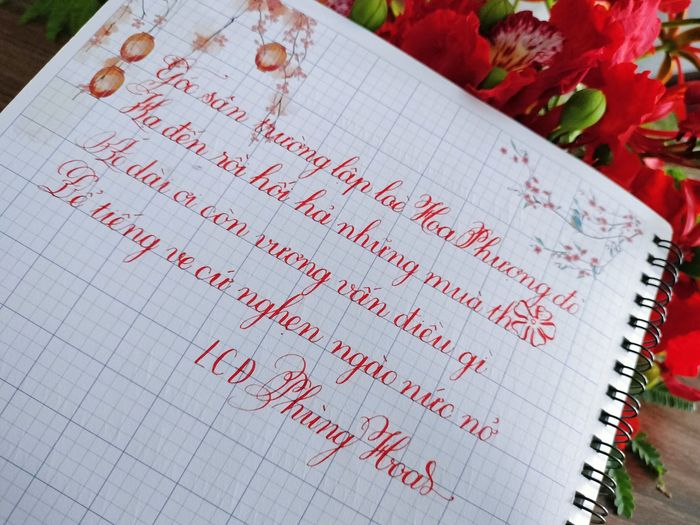 Góc sân trường lập loè Hoa Phượng đỏ
Hạ đến rồi hối hả những muà th
dài ơi còn vương vấn điều gì
Để tiếng ve cứ nghẹn ngào nức nở
LCĐ Phùng Hoa